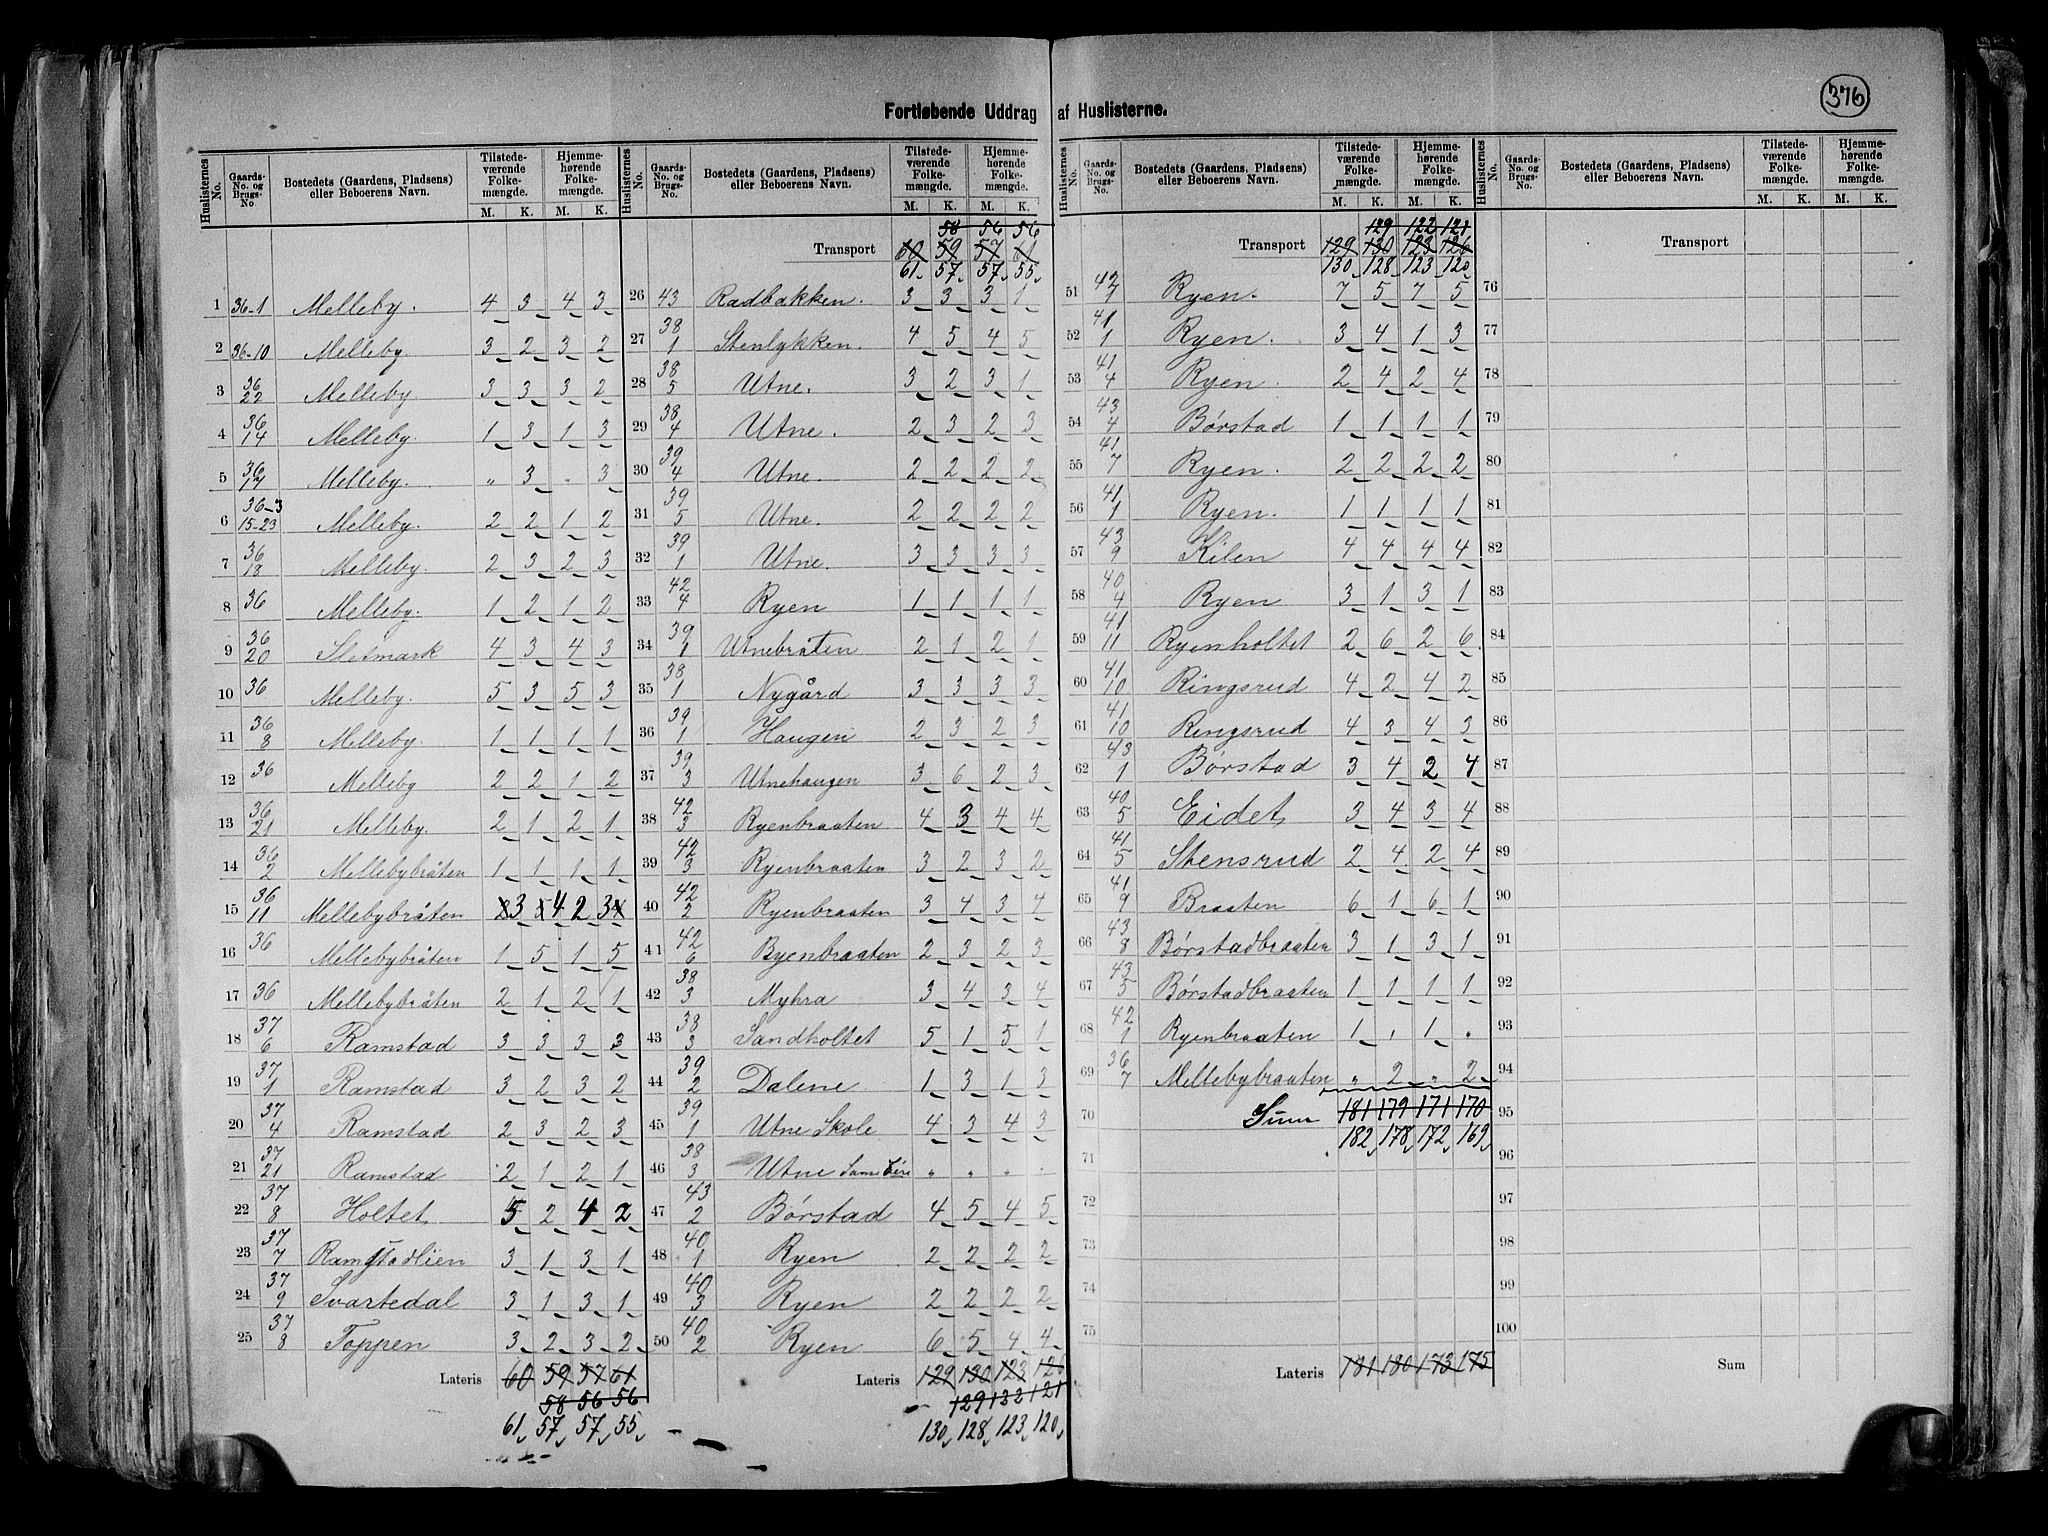 376
Fortløbende Uddrag af Huslisterne.
Huslisternes No. | Gaards-No. og Brugs-No. | Bostedets (Gaardens, Pladsens) eller Beboerens Navn. | Tilstedeværende Folkemængde. M. K. | Hjemmehørende Folkemængde. M. K.
1 36-1 Melleby. 4 3 4 3
2 36-10 Melleby. 3 2 3 2
3 36/22 Melleby 3 3 3 2
4 36/14 Melleby. 1 3 1 3
5 36/17 Melleby. „ 3 „ 3
6 36-3 15-23 Melleby. 2 2 1 2
7 36/18 Melleby. 2 3 2 3
8 36 Melleby. 1 2 1 2
9 36/20 Sletmark 4 3 4 3
10 36 Melleby. 5 3 5 3
11 36/8 Melleby. 1 1 1 1
12 36 Melleby 2 2 1 2
13 36/21 Melleby. 2 1 2 1
14 36/2 Mellebybråten 1 1 1 1
15 36/11 Mellebybråten 3 4 2 3
16 36 Mellebybråten 1 5 1 5
17 36 Mellebybråten 2 1 2 1
18 37/6 Ramstad 3 3 3 3
19 37/1 Ramstad 3 2 3 2
20 37/4 Ramstad 2 3 2 3
21 37/21 Ramstad 2 1 2 1
22 37/8 Holtet 5 2 4 2
23 37/7 Ramstadlien 3 1 3 1
24 37/9 Svartedal 3 1 3 1
25 37/8 Toppen 3 2 3 2
Lateris 60 59 57 61
58 56 56
61 57 57 55
Huslisternes No. | Gaards-No. og Brugs-No. | Bostedets (Gaardens, Pladsens) eller Beboerens Navn. | Tilstedeværende Folkemængde. M. K. | Hjemmehørende Folkemængde. M. K.
58 56 56
Transport 60 59 57 61
61 57 57 55
26 43 Radbakken. 3 3 3 1
27 38/1 Stenlykken. 4 5 4 5
28 38/5 Utne. 3 2 3 1
29 38/4 Utne. 2 3 2 3
30 39/4 Utne. 2 2 2 2
31 39/5 Utne. 2 2 2 2
32 39/1 Utne. 3 3 3 3
33 42/4 Ryen 1 1 1 1
34 39/1 Utnebråten 2 1 2 1
35 38/1 Nygård 3 3 3 3
36 39/1 Haugen 2 3 2 3
37 39/3 Utnehaugen 3 6 2 3
38 42/3 Ryenbraaten 4 3 4 4
39 42/3 Ryenbraaten 3 2 3 2
40 42/2 Ryenbraaten 3 4 3 4
41 42/6 Ryenbraaten 2 3 2 3
42 38/3 Myhra 3 4 3 4
43 38/3 Sandholtet 5 1 5 1
44 39/2 Dalene 1 3 1 3
45 39/1 Utne Skole 4 3 4 3
46 38/3 Utne „ „ „ „
47 43/2 Børstad 4 5 4 5
48 40/1 Ryen 2 2 2 2
49 40/3 Ryen 2 2 2 2
50 40/2 Ryen 6 5 4 4
Lateris 129 130 123 126
129 122 121
130 128 123 120
Huslisternes No. | Gaards-No. og Brugs-No. | Bostedets (Gaardens, Pladsens) eller Beboerens Navn. | Tilstedeværende Folkemængde. M. K. | Hjemmehørende Folkemængde. M. K.
129 122 121
Transport 129 130 123 126
130 128 123 120
51 42/1 Ryen. 7 5 7 5
52 41/1 Ryen. 3 4 1 3
53 41/4 Ryen. 2 4 2 4
54 43/4 Børstad 1 1 1 1
55 41/7 Ryen. 2 2 2 2
56 41/1 Ryen. 1 1 1 1
57 43/9 Kilen 4 4 4 4
58 40/4 Ryen 3 1 3 1
59 41/11 Ryenholtet 2 6 2 6
60 41/10 Ringsrud 4 2 4 2
61 41/10 Ringsrud 4 3 4 3
62 43/1 Børstad 3 4 2 4
63 40/5 Eidet 3 4 3 4
64 41/5 Stensrud 2 4 2 4
65 41/9 Braaten 6 1 6 1
66 43/8 Børstadbraaten 3 1 3 1
67 43/5 Børstadbraaten 1 1 1 1
68 42/1 Ryenbraaten 1 „ 1 „
69 36/7 Mellebybraaten „ 2 „ 2
70 Sum 181 179 171 170
182 178 172 169
71
72
73
74
75
Lateris 181 180 173 175
Huslisternes No. | Gaards-No. og Brugs-No. | Bostedets (Gaardens, Pladsens) eller Beboerens Navn. | Tilstedeværende Folkemængde. M. K. | Hjemmehørende Folkemængde. M. K.
Transport
76
77
78
79
80
81
82
83
84
85
86
87
88
89
90
91
92
93
94
95
96
97
98
99
100
Sum